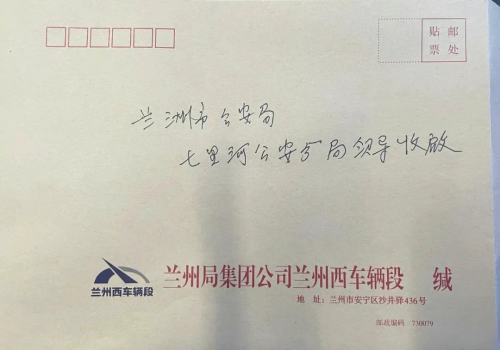 贴 邮
票 处
兰洲市公安局
七里河公安分局领导收啟
兰州西车辆段
兰州局集团公司兰州西车辆段 缄
地 址：兰州市安宁区沙井驿436号
邮政编码 730079